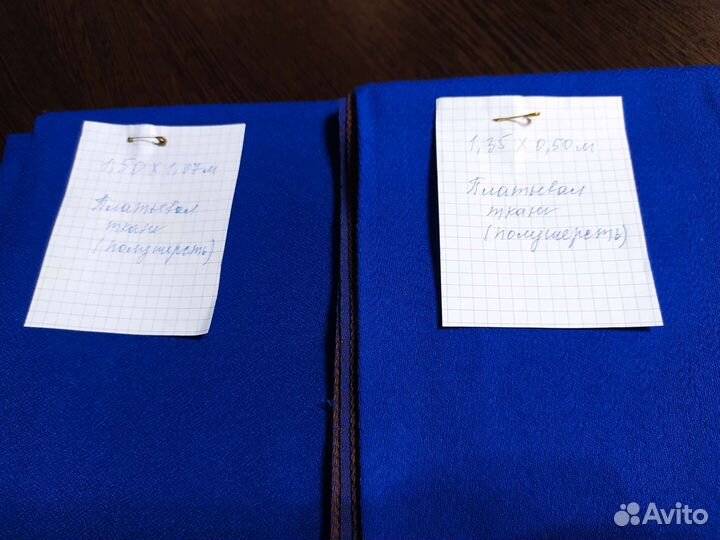 1,50 х 1,07м
Платьевая
ткань
(полушерсть)
1,35 х 0,50м
Платьевая
ткань
(полушерсть)
Avito